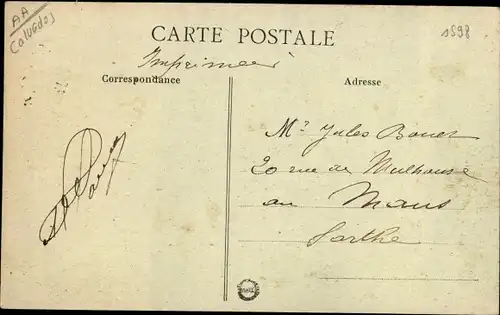 AA
Calvados
1598
CARTE POSTALE
Imprimée
Correspondance
Adresse
Mr Jules Bouet
20 rue de Mulhouse
au Mans
Sarthe